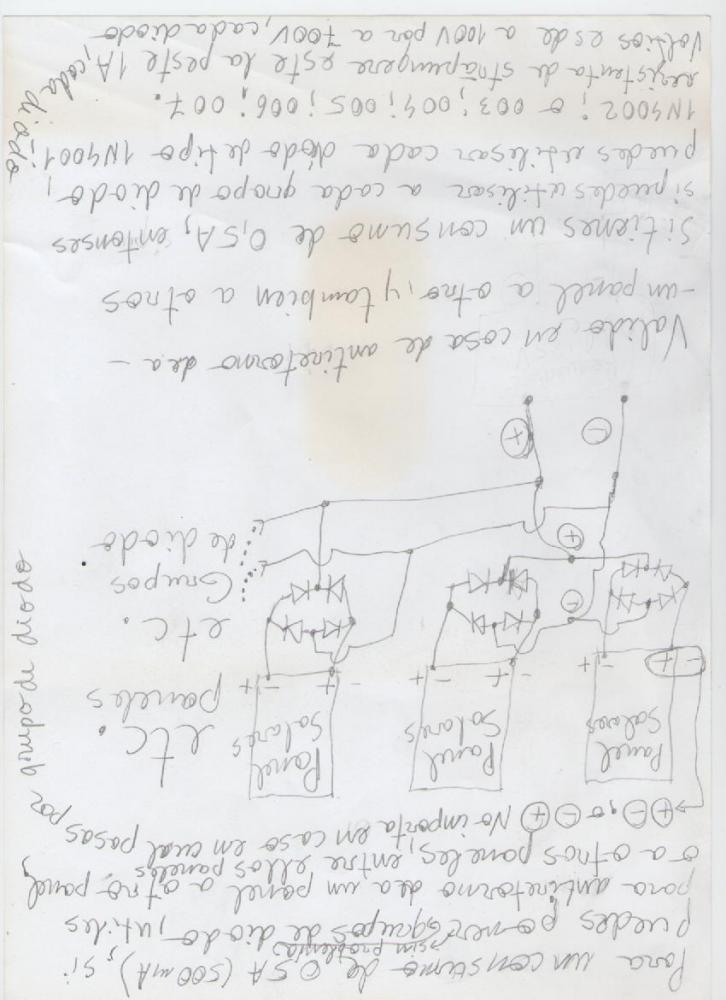 Para un consumo de 0,5A (500mA), si
puedes sin problema poner grupos de diodo, utiles
para antiretorno de a un panel a otro panel,
o a otros paneles, entre ellos paneles
⊖⊕, o ⊖⊕ No importa en caso en cual pasas
por grupo de diodo
Panel Solares
Panel Solares
Panel Solares
etc.
paneles
- +
- +
- + -
+
- + -
+
etc.
Grupos
de diodo
⊖
⊕
⊖
⊕
Valido en cosa de antiretorno de a -
- un panel a otro, y tambien a otros
Si tienes un consumo de 0,5A, entonses
si puedes utilisar a cada grupo de diodo,
puedes utilisar cada diodo de tipo 1N4001;
1N4002; o 003; 004; 005; 006; 007.
rezistenta de strapungere este la peste 1A, cada diodo
Voltios es de a 100V por a 700V, cada diodo